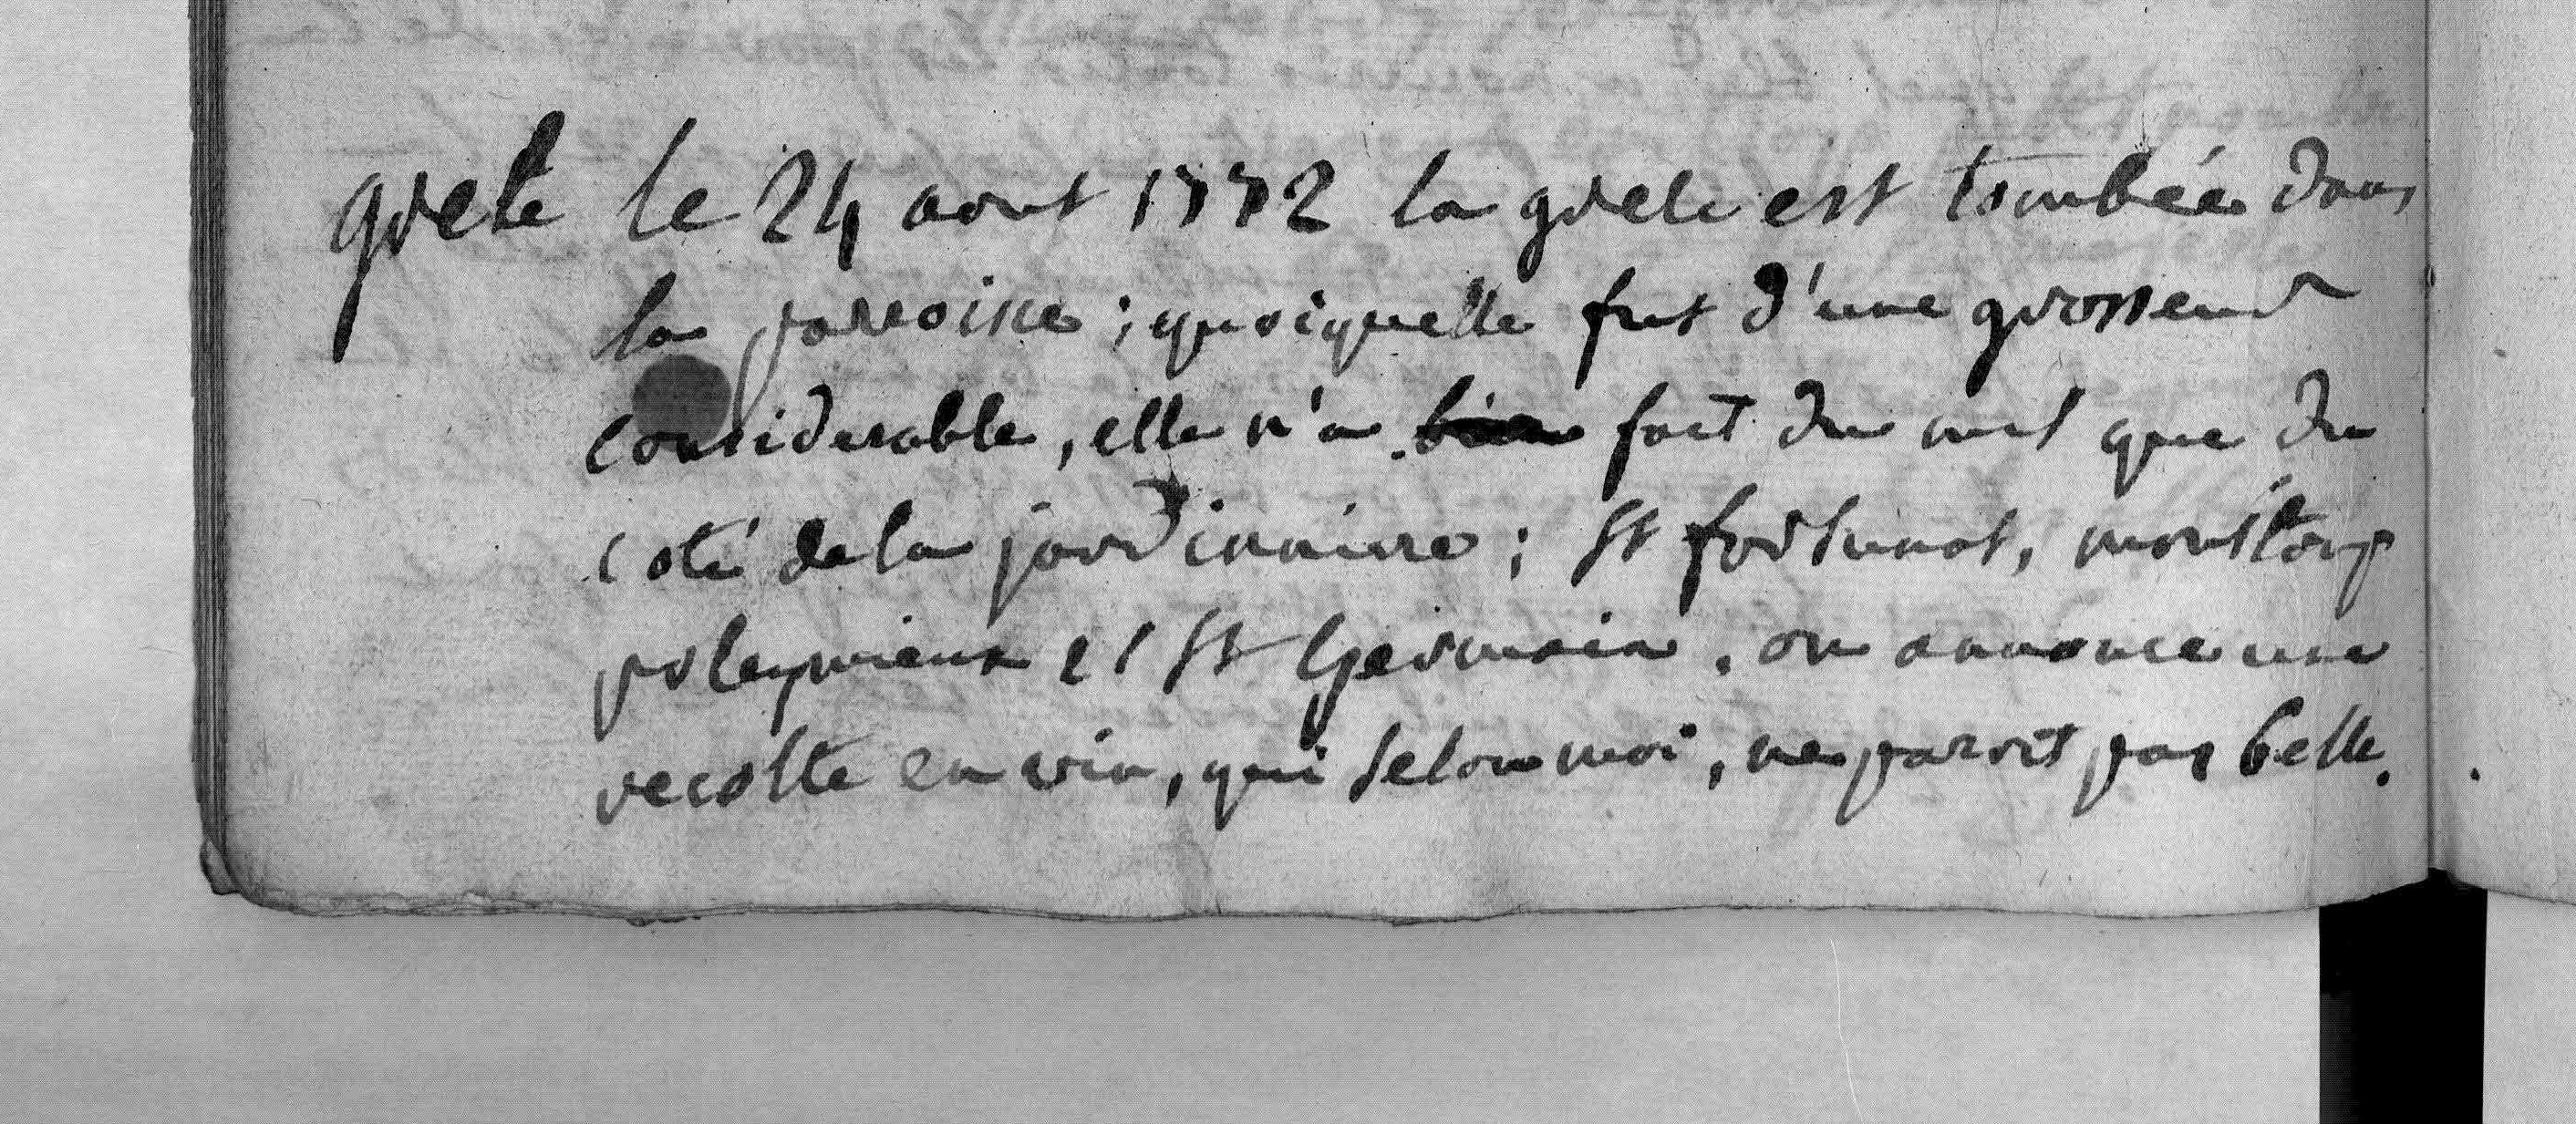 grele le 24 aout 1772 la grele est tombée dans
la paroisse ; quoiquelle fut d'une grosseur
considerable, elle n'a bien fait du mal que du
coté de la jardinniere ; St fortunat, montloup
poleymieux et St Germain. on annonce une
recolte en vin, qui selon moi, ne paroit pas belle.